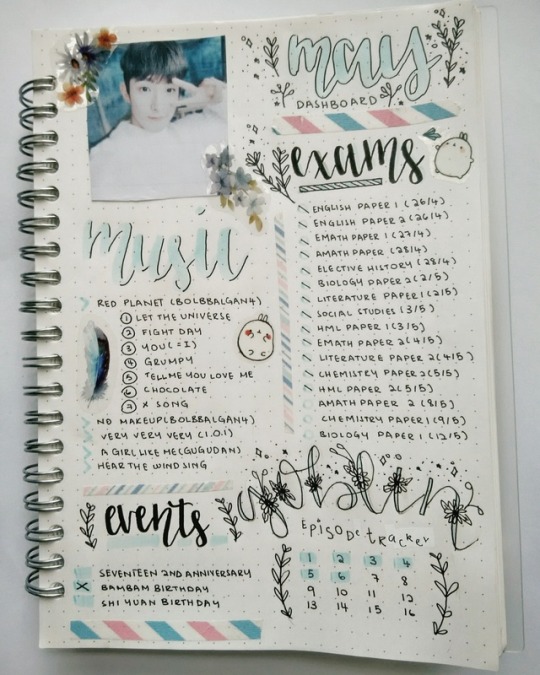 may
DASHBOARD
exams
ENGLISH PAPER 1 (26/4)
ENGLISH PAPER 2 (26/4)
EMATH PAPER 1 (27/4)
AMATH PAPER (28/4)
ELECTIVE HISTORY (28/4)
BIOLOGY PAPER 2 (2/5)
LITERATURE PAPER 1 (2/5)
SOCIAL STUDIES (3/5)
HML PAPER 1 (3/5)
EMATH PAPER 2 (4/5)
LITERATURE PAPER 2 (4/5)
CHEMISTRY PAPER 2 (5/5)
HML PAPER 2 (5/5)
AMATH PAPER 2 (8/5)
CHEMISTRY PAPER 1 (9/5)
BIOLOGY PAPER 1 (12/5)
music
RED PLANET (BOLBBALGAN4)
1 LET THE UNIVERSE
2 FIGHT DAY
3 YOU (=I)
4 GRUMPY
5 TELL ME YOU LOVE ME
6 CHOCOLATE
7 X SONG
NO MAKEUP (BOLBBALGAN4)
VERY VERY VERY (I.O.I)
A GIRL LIKE ME (GUGUDAN)
HEAR THE WIND SING
events
SEVENTEEN 2ND ANNIVERSARY
BAMBAM BIRTHDAY
SHI YUAN BIRTHDAY
goblin
EPISODE tRACKER
1 2 3 4
5 6 7 8
9 10 11 12
13 14 15 16